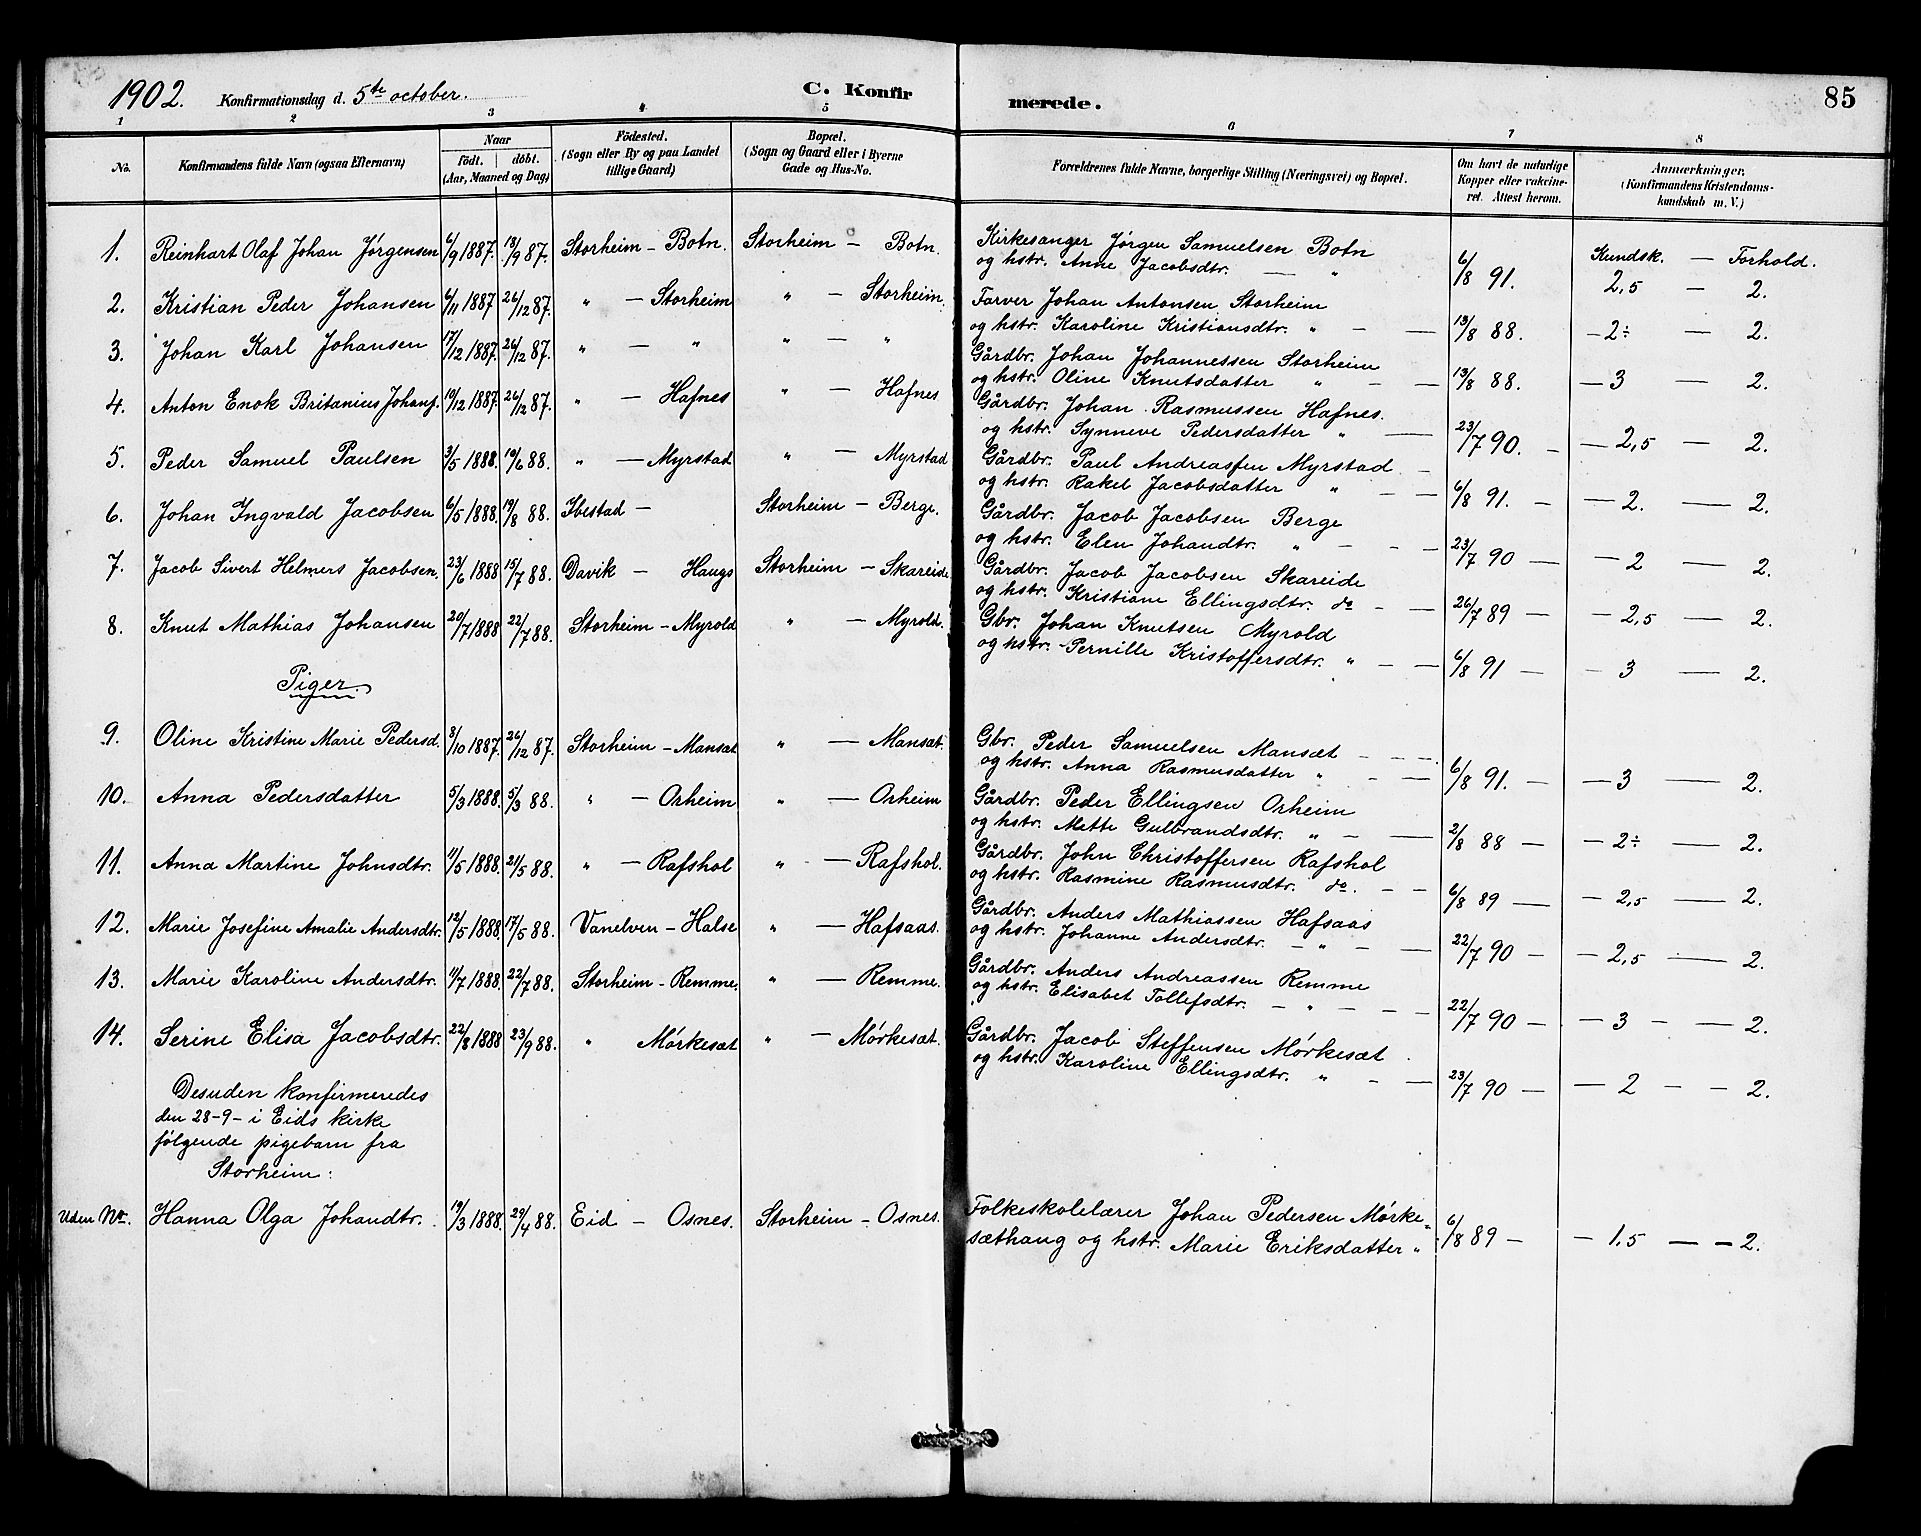 1902. Konfirmationsdag d. 5te october. C. Konfirmerede. 85
1 2 3 4 5 6 7 8
No. Konfirmandens fulde Navn (ogsaa Efternavn) Naar födt. döbt. (Aar, Maaned og Dag) Födested. (Sogn eller By og paa Landet tillige Gaard) Bopæl. (Sogn og Gaard eller i Byerne Gade og Hus-No. Forældrenes fulde Navne, borgerlige Stilling (Næringsvei) og Bopæl. Om havt de naturlige Kopper eller vakcineret. Attest herom. Anmærkninger. (Konfirmandens Kristendomskundskab m. V.)
Kundsk. — Forhold.
1. Reinhart Olaf Johan Jørgensen 4/9 1887. 18/9 87. Storheim — Botn. Storheim — Botn. Kirkesanger Jørgen Samuelsen Botn
og hstr. Anne Jacobsdtr. — " 6/8 91. 2,5 — 2.
2. Kristian Peder Johansen 6/11 1887. 26/12 87. " — Storheim " — Storheim. Farver Johan Antonsen Storheim
og hstr. Karoline Kristiansdtr. " — — 13/8 88. — 2÷ — 2.
3. Johan Karl Johansen 17/12 1887. 26/12 87. " — " " — " Gårdbr. Johan Johannessen Storheim
og hstr. Oline Knutsdatter " — — 13/8 88. — 3 — 2.
4. Anton Enok Britanius Johans. 19/12 1887. 26/12 87. " — Hafnes " — Hafnes Gårdbr. Johan Rasmussen Hafnes.
og hstr. Synneve Pedersdatter " — 23/7 90. — — 2,5 — 2.
5. Peder Samuel Paulsen 3/5 1888. 10/6 88. " — Myrstad " — Myrstad Gårdbr. Paul Andreassen Myrstad —
og hstr. Rakel Jacobsdatter " — — 6/8 91. — — 2. — 2.
6. Johan Ingvald Jacobsen 6/5 1888. 19/8 88. Ibestad — Storheim — Berge. Gårdbr. Jacob Jacobsen Berge
og hstr. Elen Johandtr. " — — — 23/7 90 — — 2 — 2.
7. Jacob Sivert Helmers Jacobsen. 23/6 1888 15/7 88. Davik — Haugs Storheim — Skareide Gårdbr. Jacob Jacobsen Skareide
og hstr. Kristiane Ellingsdtr. do — — 26/7 89 — — 2,5 — 2.
8. Knut Mathias Johansen 20/7 1888 22/7 88. Storheim — Myrold " — Myrold. Gbr. Johan Knutsen Myrold
og hstr. Pernille Kristoffersdtr. " — — 6/8 91 — — 3 — 2.
Piger.
9. Oline Kristine Marie Pedersd. 3/10 1887. 26/12 87. Storheim — Mansæt " — Mansæt. Gbr. Peder Samuelsen Mansæt — — —
og hstr. Anna Rasmusdatter " — — 6/8 91. — — 3 — 2.
10. Anna Pedersdatter 5/3 1888. 5/3 88. " — Orheim " — Orheim Gårdbr. Peder Ellingsen Orheim
og hstr. Mette Gulbrandsdtr. " — — 2/8 88 — — 2÷ — 2.
11. Anna Martine Johnsdtr. 11/5 1888. 21/5 88. " — Rafshol " — Rafshol. Gårdbr. John Christoffersen Rafshol
og hstr. Rasmine Rasmusdtr. do. — — 6/8 89 — — 2,5 — 2.
12. Marie Josefine Amalie Andersdtr. 12/5 1888. 17/5 88. Vanelven — Halse " — Hafsaas. Gårdbr. Anders Mathiassen Hafsaas
og hstr. Johanne Andersdtr. — " — — 22/7 90 — — 2,5 — 2.
13. Marie Karoline Andersdtr. 11/7 1888. 22/7 88. Storheim — Remme. " — Remme. Gårdbr. Anders Andreassen Remme
og hstr. Elisabet Tollefsdtr. — " — — — 22/7 90 — — 3 — — 2.
14. Serine Elisa Jacobsdtr. 22/8 1888 23/9 88. " Mørkesæt " — Mørkesæt. Gårdbr. Jacob Steffensen Mørkesæt
og hstr. Karoline Ellingsdtr. " — — 23/7 90 — — 2 — — 2.
Desuden konfirmeredes
den 28-9- i Eids kirke
følgende pigebarn fra
Storheim:
Uden No. Hanna Olga Johandtr. 19/3 1888. 29/4 88. Eid — Osnes. Storheim — Osnes. Folkeskolelærer Johan Pedersen Mørke-
sæthaug og hstr. Marie Eriksdatter " 6/8 89 — — 1.5 — — 2.